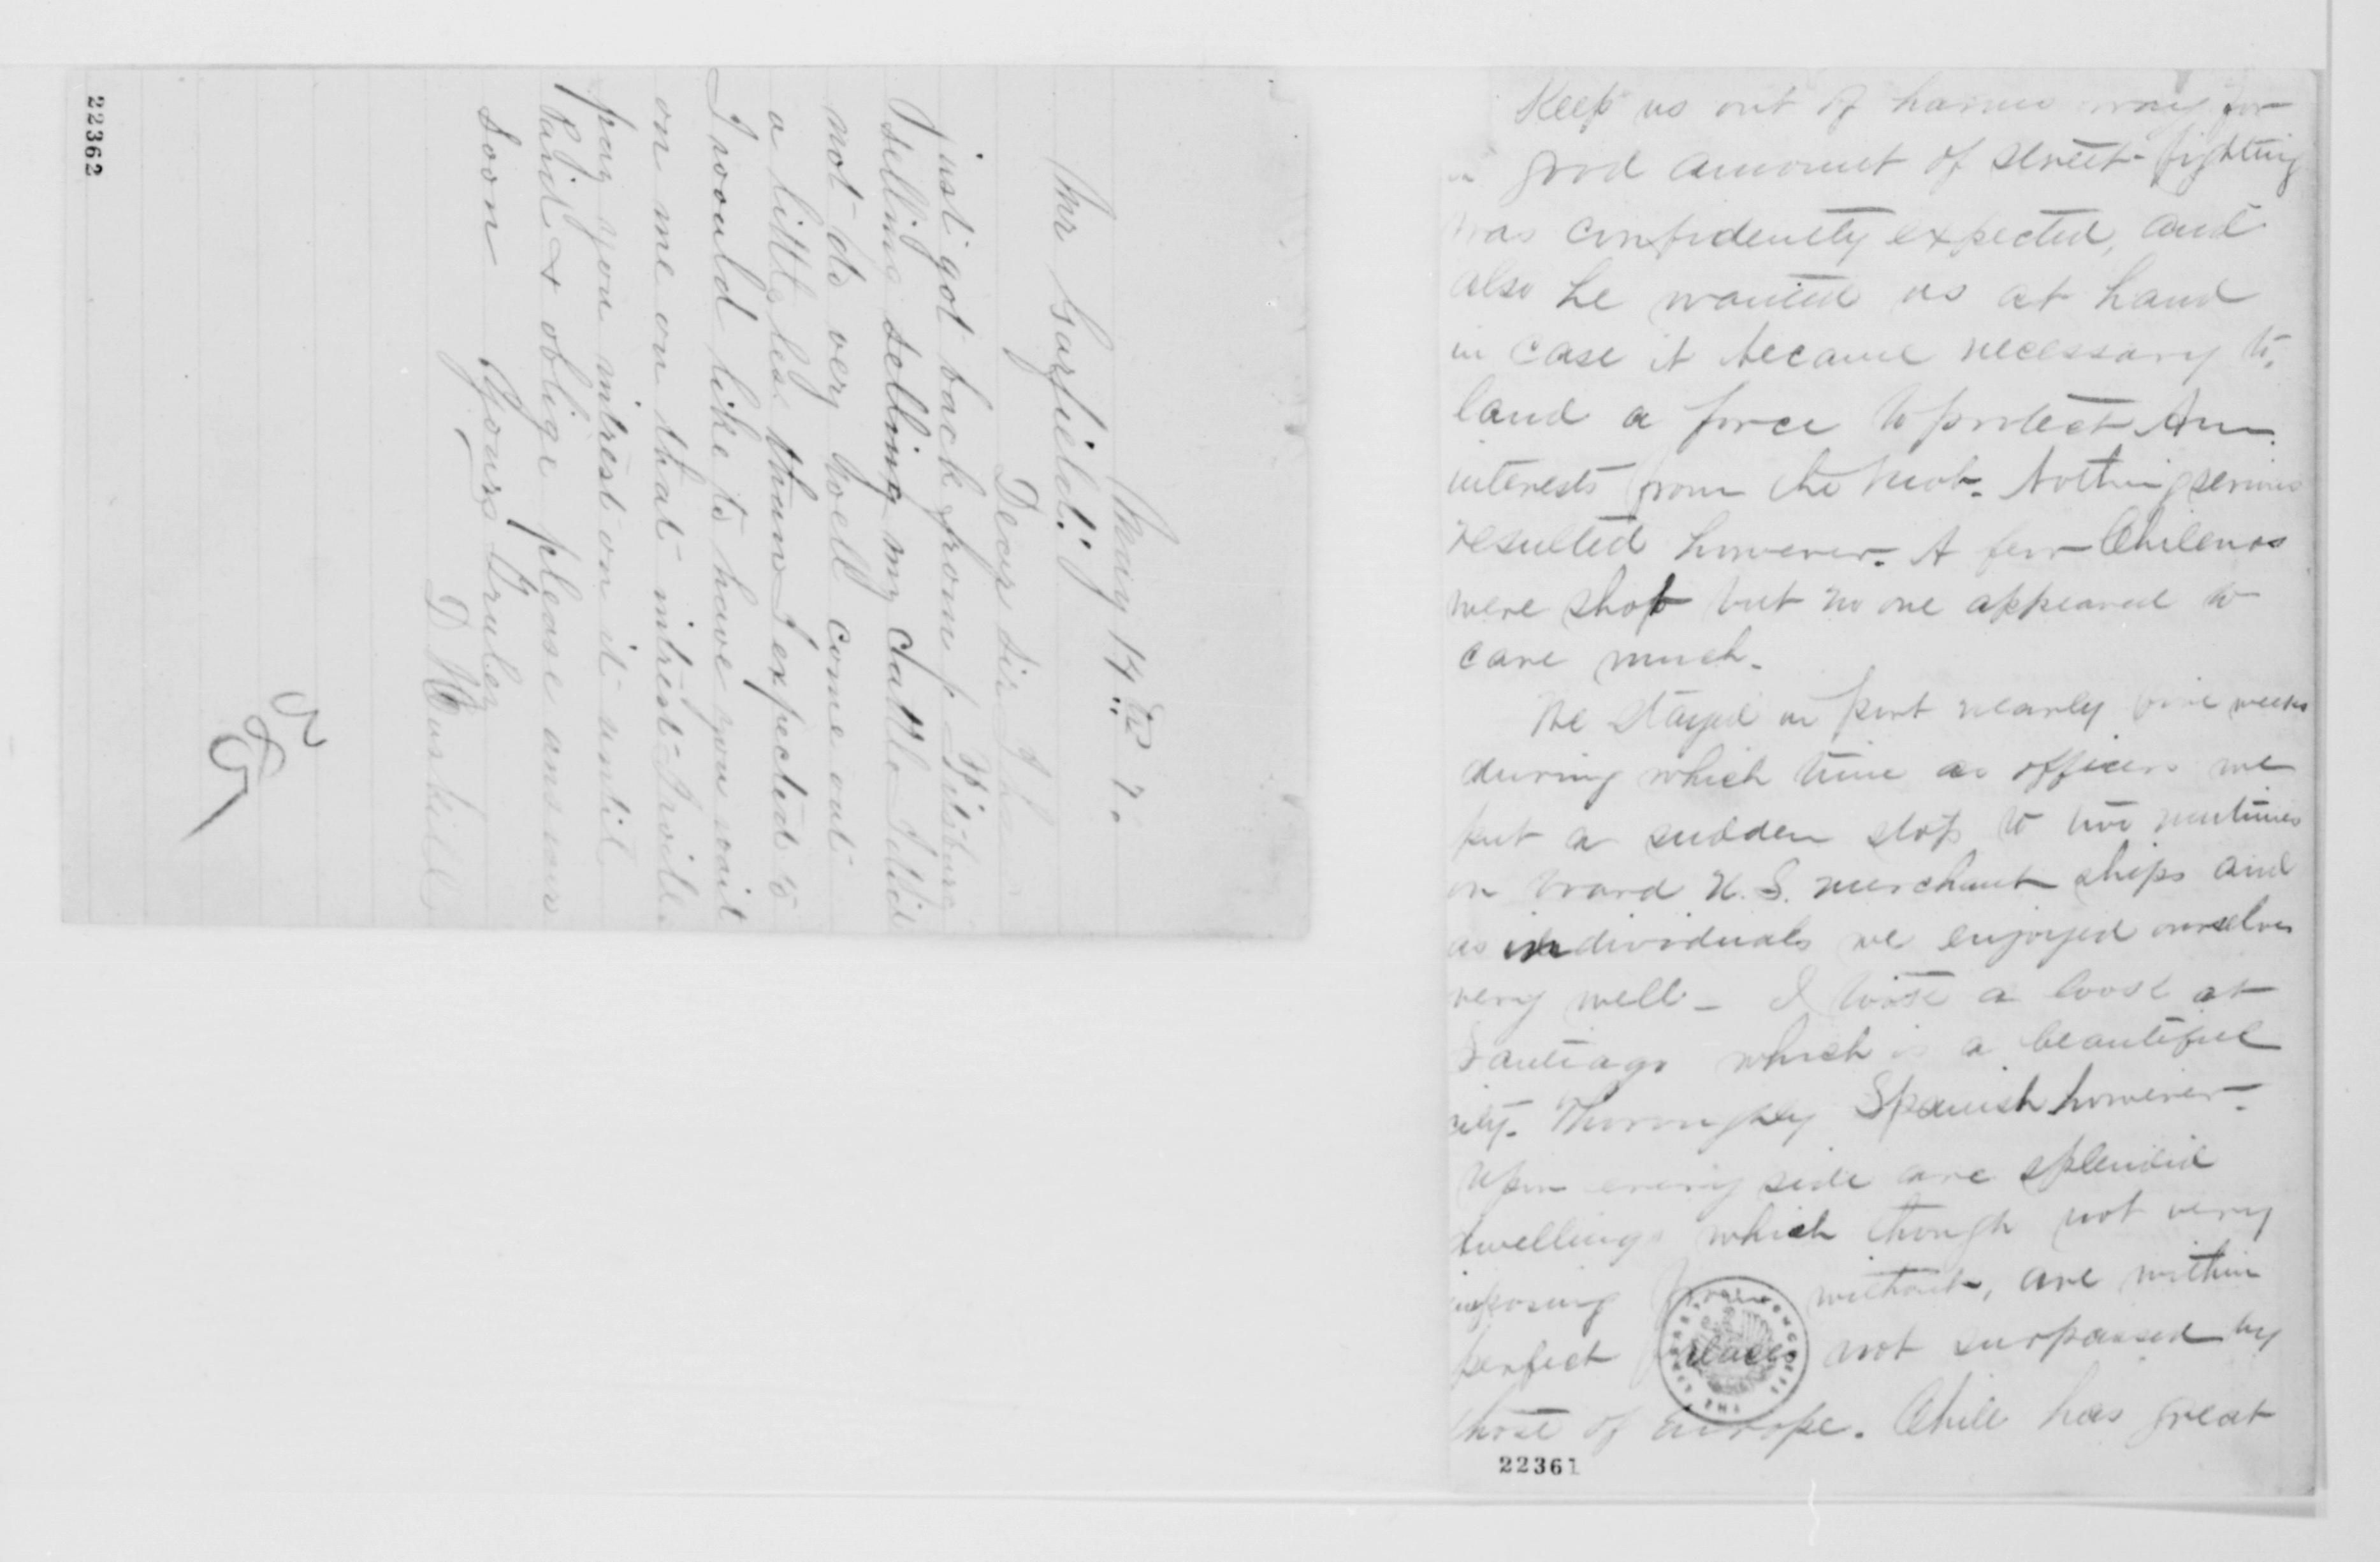 May 14th 7.
Mr Garfield.
Dear Sir I ha
just got back from Pitsburg
selling selling my cattle I did
not do very well come out
a little les than I expected to
I would like to have you wait
on me on that intrest I will
pay you intrest on it until
Paid & oblige please answer
Soon Yours Truley
D
22362
Keep us out of harms way for
a good amount of street-fighting
was confidently expected, and
also he wanted us at hand
in case it became necessary to
land a force to protect Am.
interests from the mob. Nothing serious
resulted however. A few Chilenos
were shot but no one appeared to
care much.
We stayed in port nearly five weeks
during which time as officers we
put a sudden stop to two mutinies
on board U.S. merchant ships and
as individuals we enjoyed ourselves
very well - I took a look at
Santiago which is a beautiful
city. Thoroughly Spanish however.
Upon every side are splendid
dwellings which though not very
imposing from without, are within
perfect palaces not surpassed by
those of Europe. Chile has great
22361